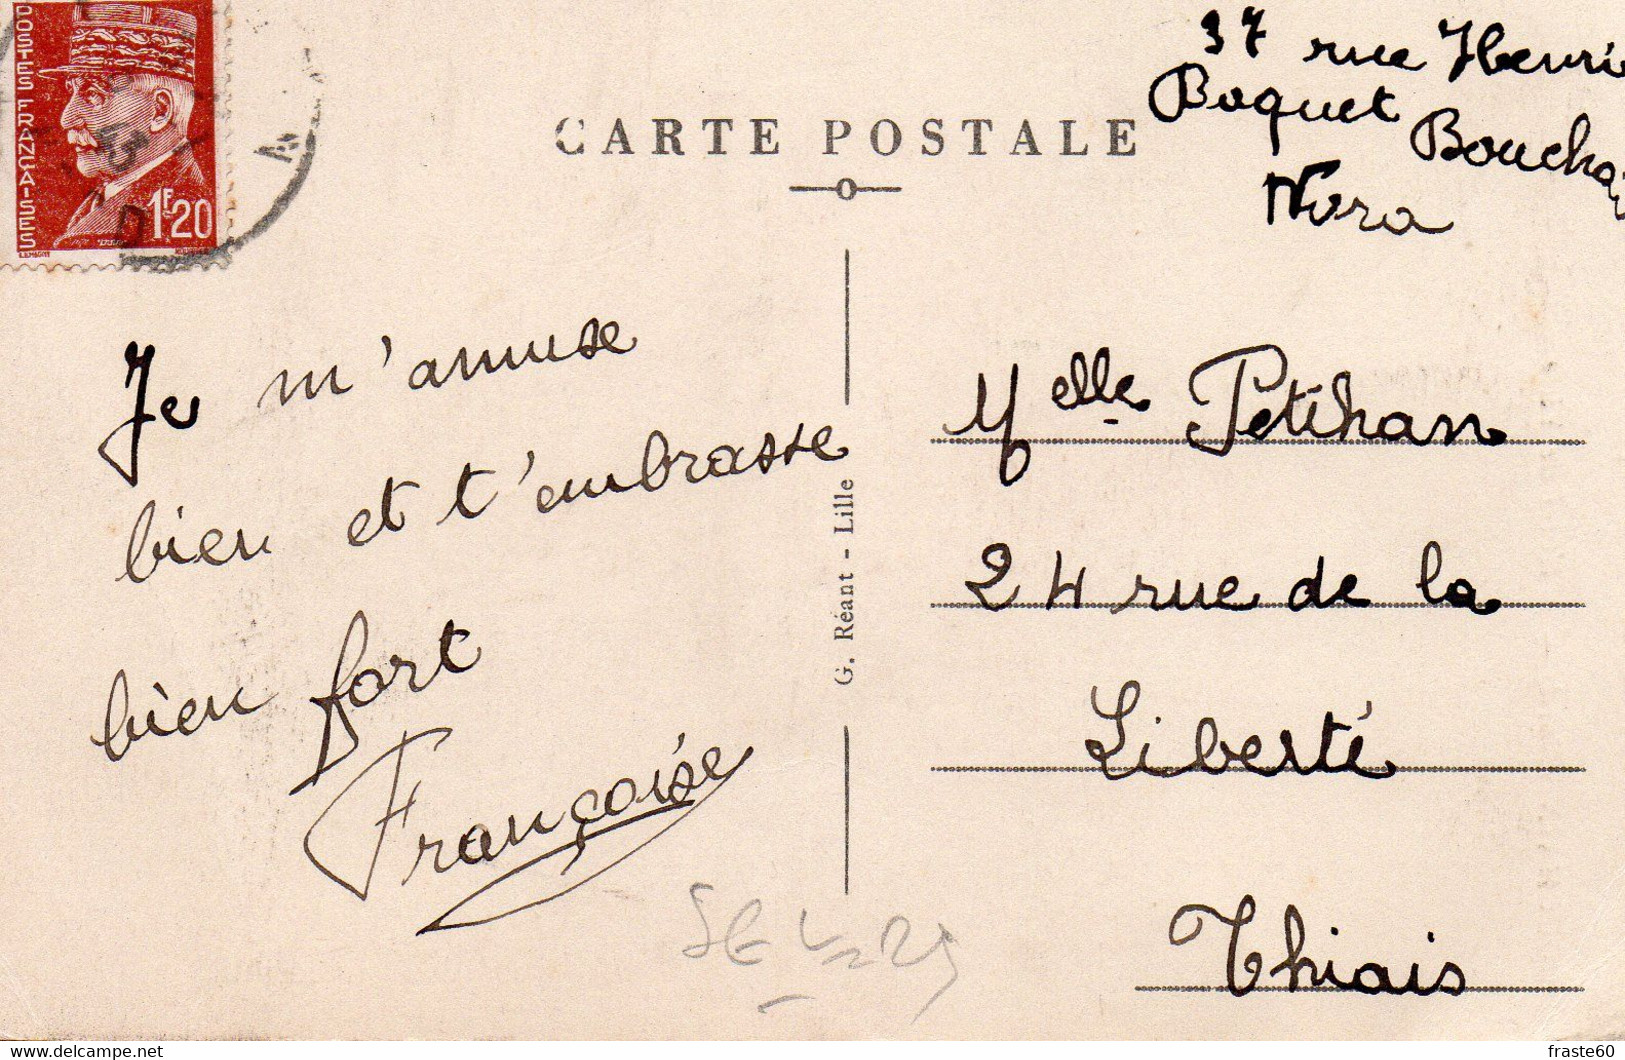 POSTES FRANÇAISES
1F20
CARTE POSTALE
37 rue Henri
Boquet Boucha
Nora
Je m'amuse
bien et t'embrasse
bien fort
Françoise
G. Réant - Lille
Melle Petihan
24 rue de la
Liberté
Thiais
fraste60